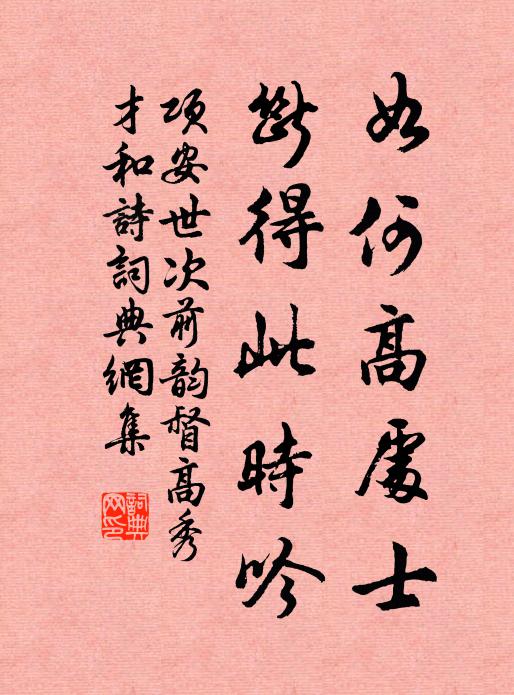 如何高處士
斷得此時吟
項安世次前韵督高秀
才和詩詞典網集
詞典網印